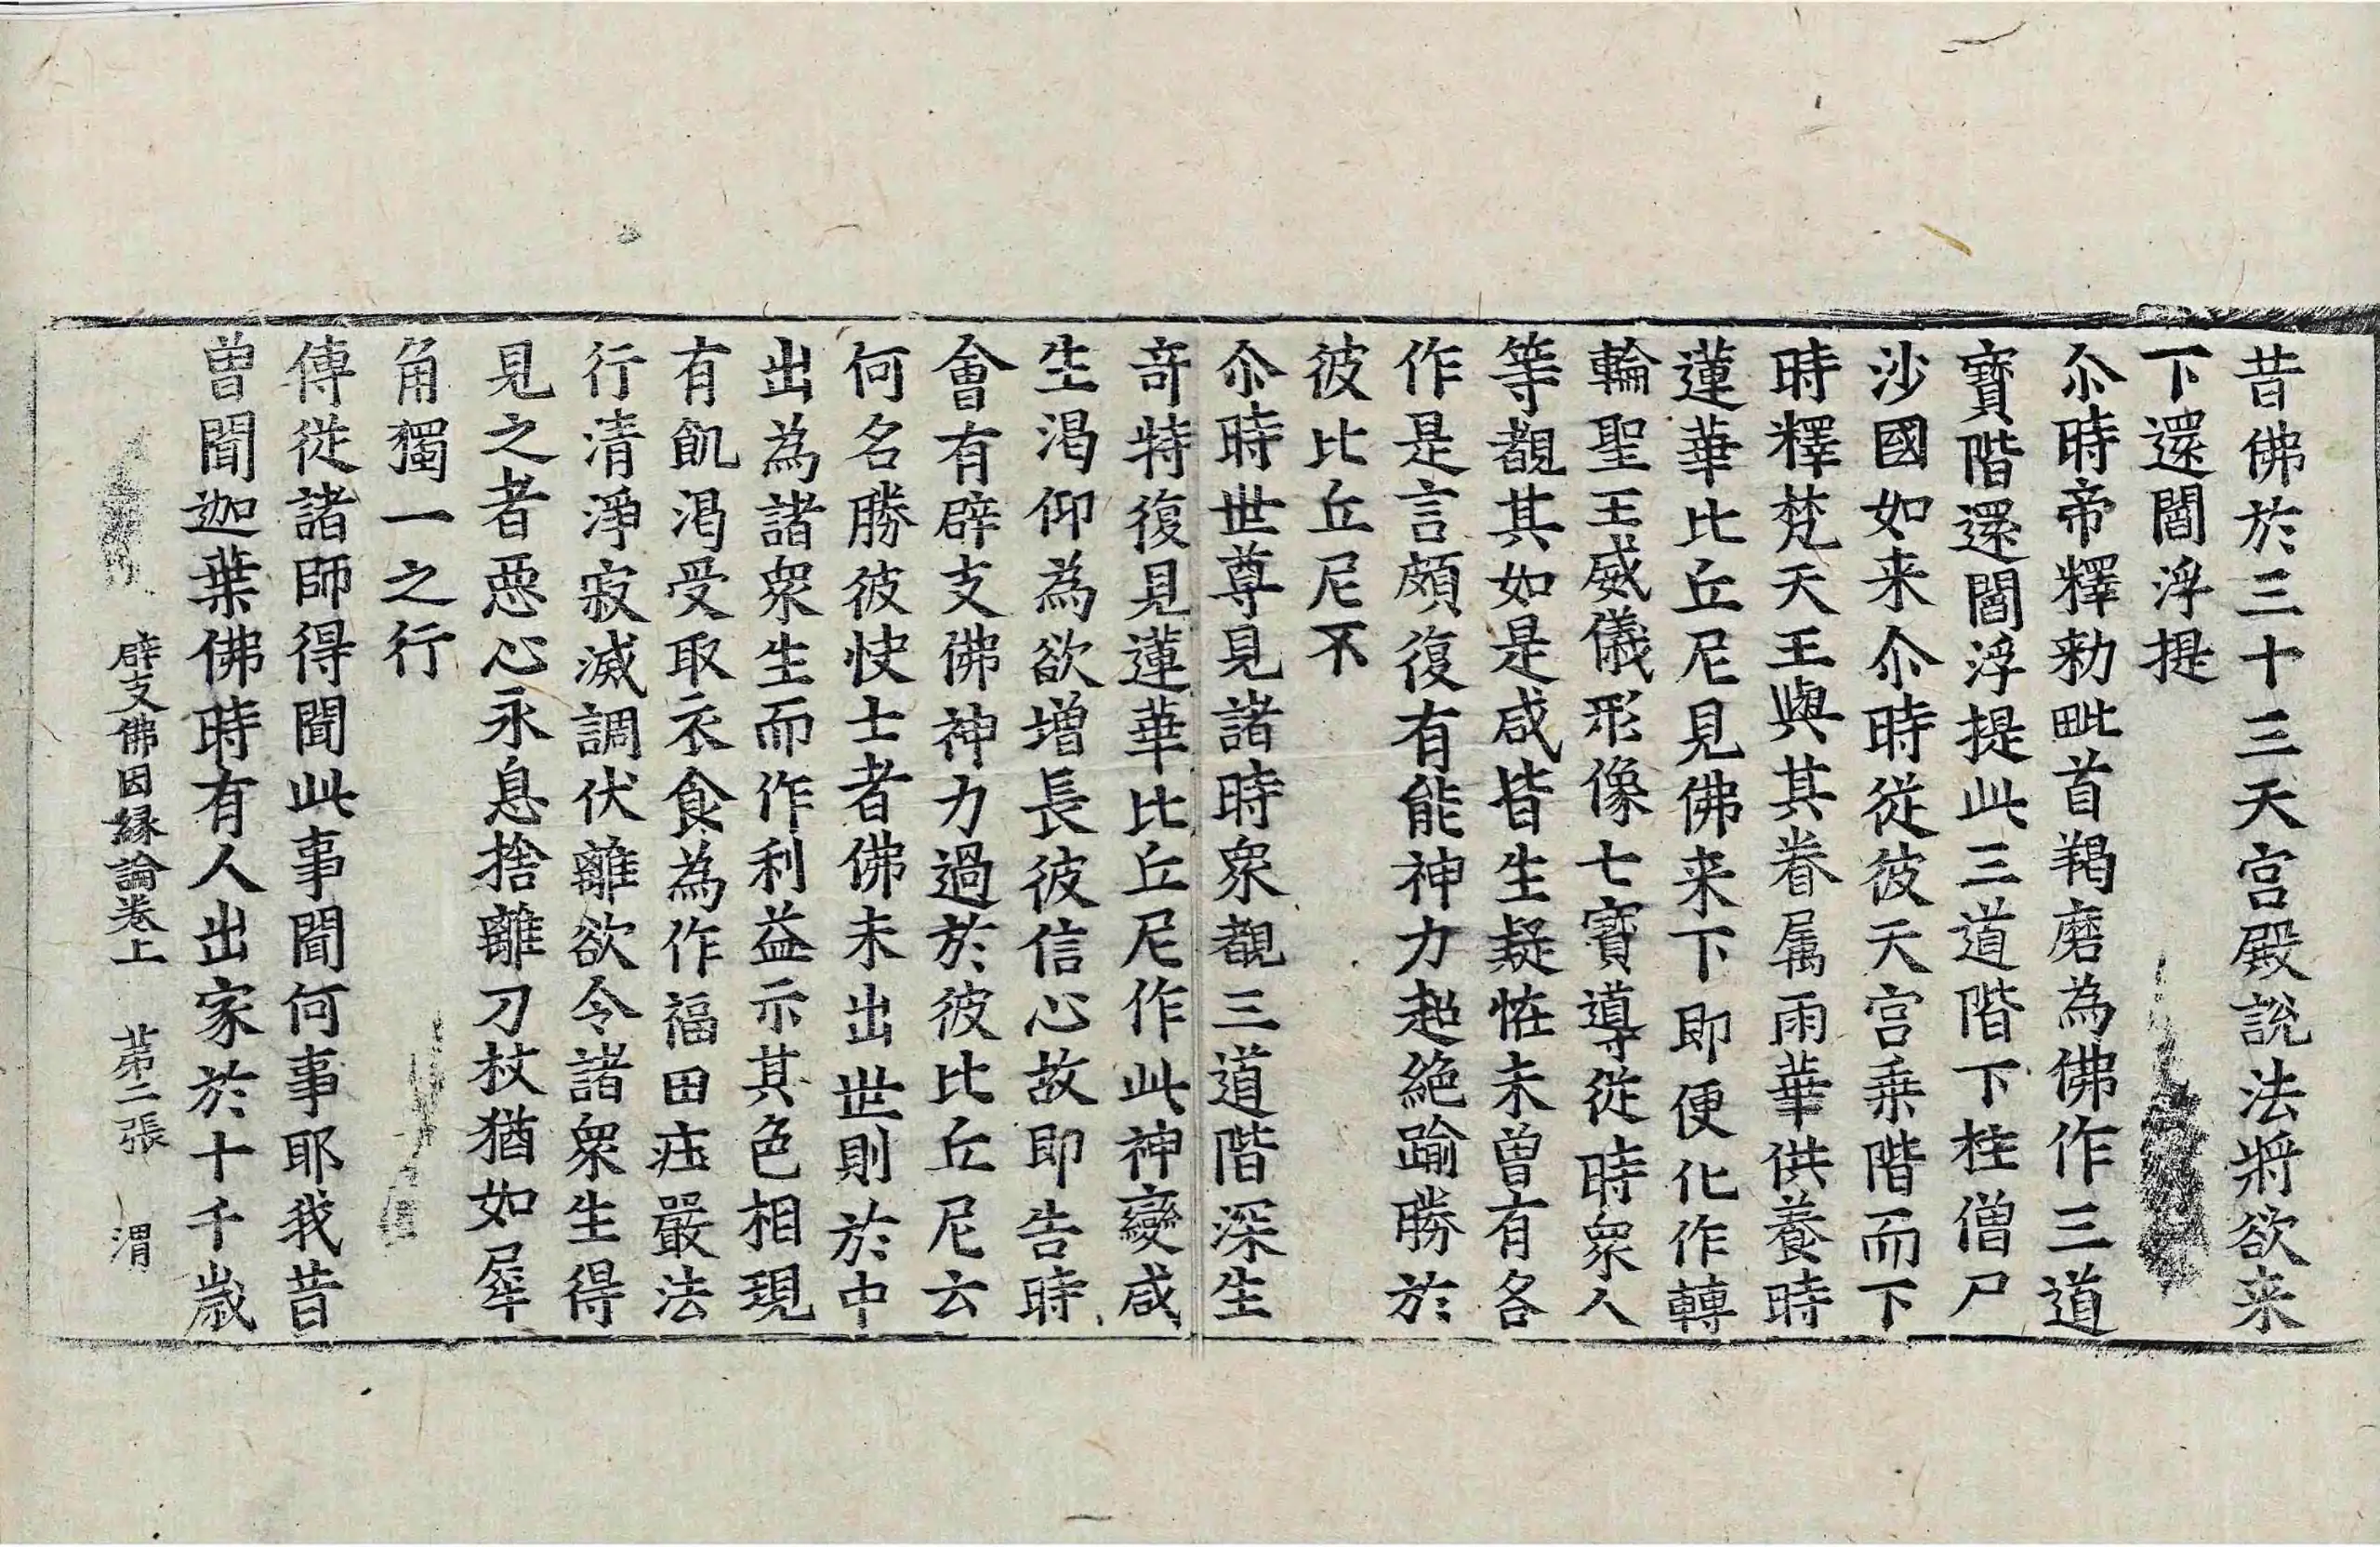 昔佛於三十三天宮殿說法將欲来
下還閻浮提
尒時帝釋勑毗首羯磨為佛作三道
寶階還閻浮提此三道階下柱僧尸
沙國如来尒時從彼天宮乘階而下
時釋梵天王與其眷属雨華供養時
蓮華比丘尼見佛来下即便化作轉
輪聖王威儀形像七寶導從時眾人
等覩其如是咸皆生疑恠未曾有各
作是言頗復有能神力超絶踰勝於
彼比丘尼不
尒時世尊見諸時眾覩三道階深生
竒特復見蓮華比丘尼作此神變咸
生渴仰為欲增長彼信心故即告時
會有辟支佛神力過於彼比丘尼云
何名勝彼快士者佛未出世則於中
出為諸眾生而作利益示其色相現
有飢渴受取衣食為作福田荘嚴法
行清淨寂滅調伏離欲令諸眾生得
見之者惡心永息捨離刀杖猶如犀
角獨一之行
傳從諸師得聞此事聞何事耶我昔
曾聞迦葉佛時有人出家於十千歲
辟支佛因縁論卷上 苐二張 渭